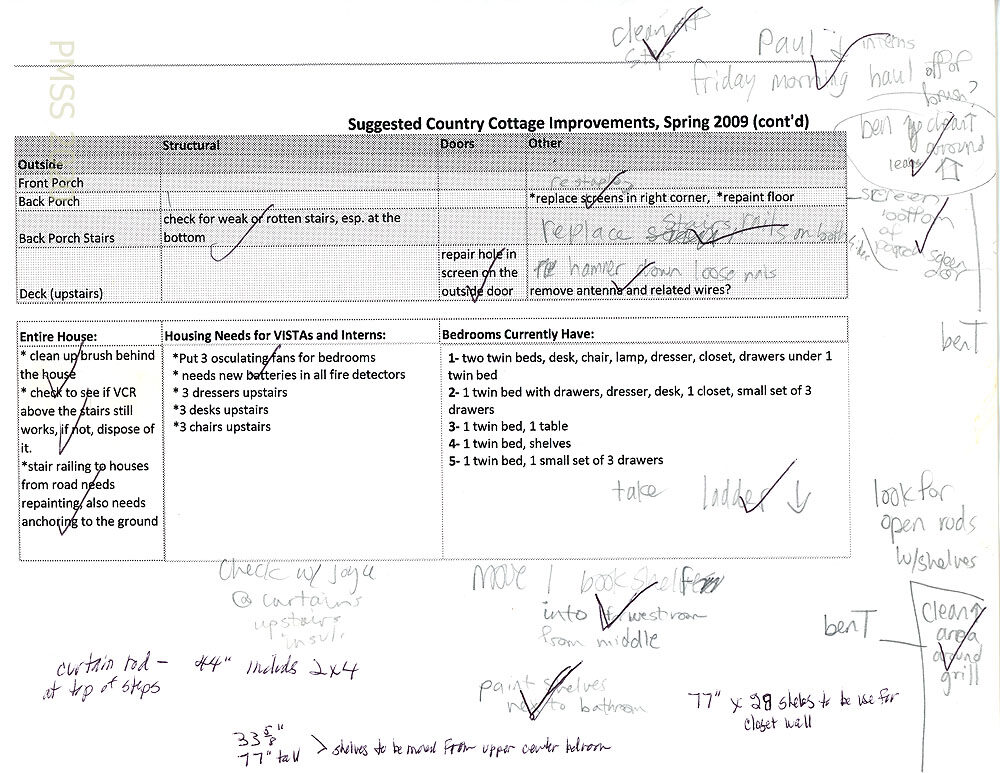 clean off
steps
Paul & interns
friday morning haul off of
brush?
PMSS
ben T clean
around
leaves
Suggested Country Cottage Improvements, Spring 2009 (cont'd)
Structural Doors Other
Outside
Front Porch
Back Porch *replace screens in right corner, *repaint floor
screen
bottom
of
porch screen
door
check for weak or rotten stairs, esp. at the
Back Porch Stairs bottom
replace stairs rails on both sides
repair hole in
screen on the
outside door
hammer down loose nails
Deck (upstairs) remove antenna and related wires?
benT
Entire House:
* clean up brush behind
the house
* check to see if VCR
above the stairs still
works, if not, dispose of
it.
*stair railing to houses
from road needs
repainting, also needs
anchoring to the ground
Housing Needs for VISTAs and Interns:
*Put 3 osculating fans for bedrooms
* needs new batteries in all fire detectors
* 3 dressers upstairs
*3 desks upstairs
*3 chairs upstairs
Bedrooms Currently Have:
1- two twin beds, desk, chair, lamp, dresser, closet, drawers under 1
twin bed
2- 1 twin bed with drawers, dresser, desk, 1 closet, small set of 3
drawers
3- 1 twin bed, 1 table
4- 1 twin bed, shelves
5- 1 twin bed, 1 small set of 3 drawers
take ladder ↓
look for
open rods
w/shelves
check w/ Joyce
@ curtains
upstairs
insul.
move 1 book shelf from
into west room
from middle
benT
clean
area
around
grill
curtain rod – 44" includs 2x4
at top of steps
paint shelves
next to bathroom
77" x 28 shelvs to be use for
closet wall
33 5/8"
77" tall > shelves to be moved from upper center bedroom